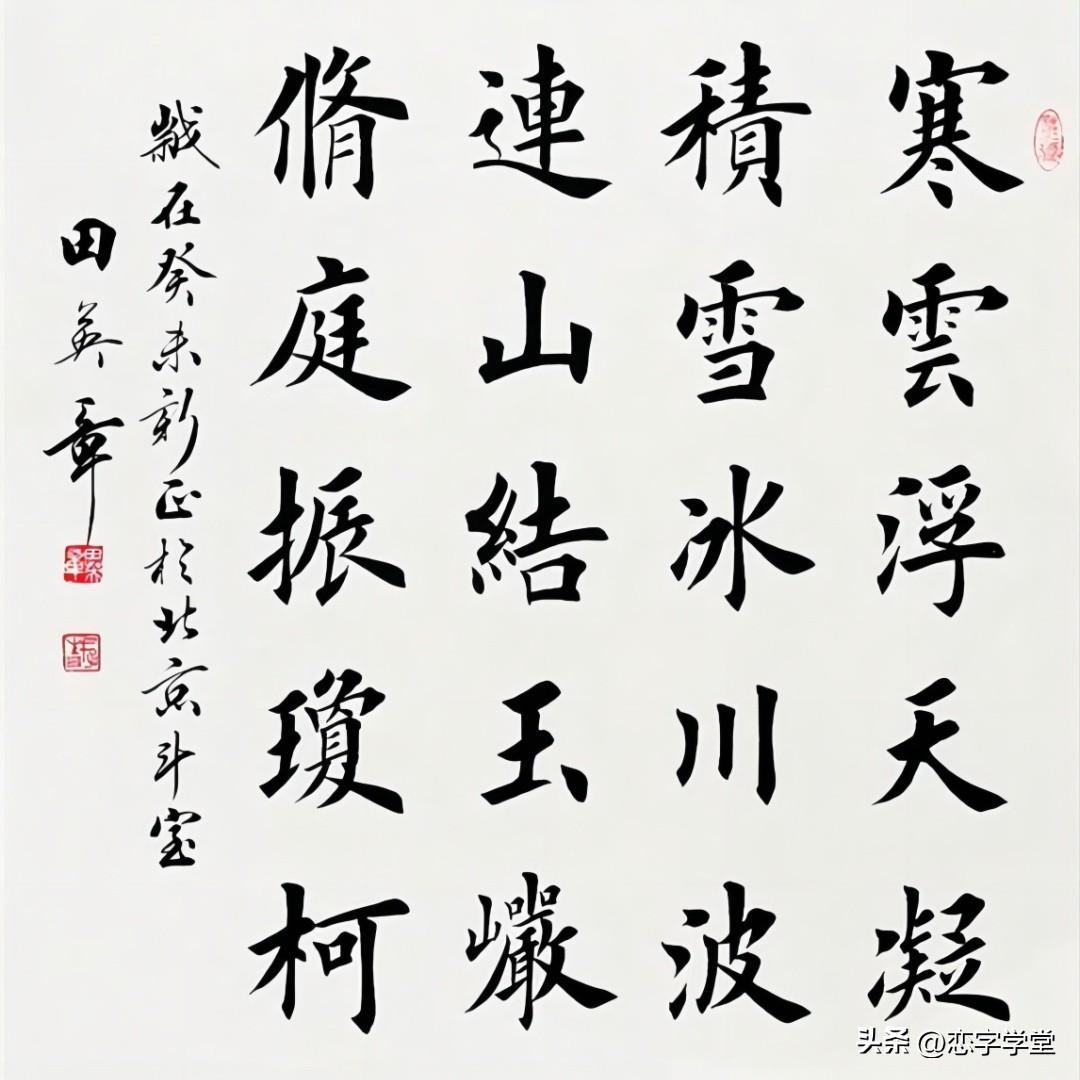 寒雲浮天凝
積雪冰川波
連山結玉巗
脩庭振瓊柯
歲在癸未新正於北京斗室
田英章
头条 @恋字学堂